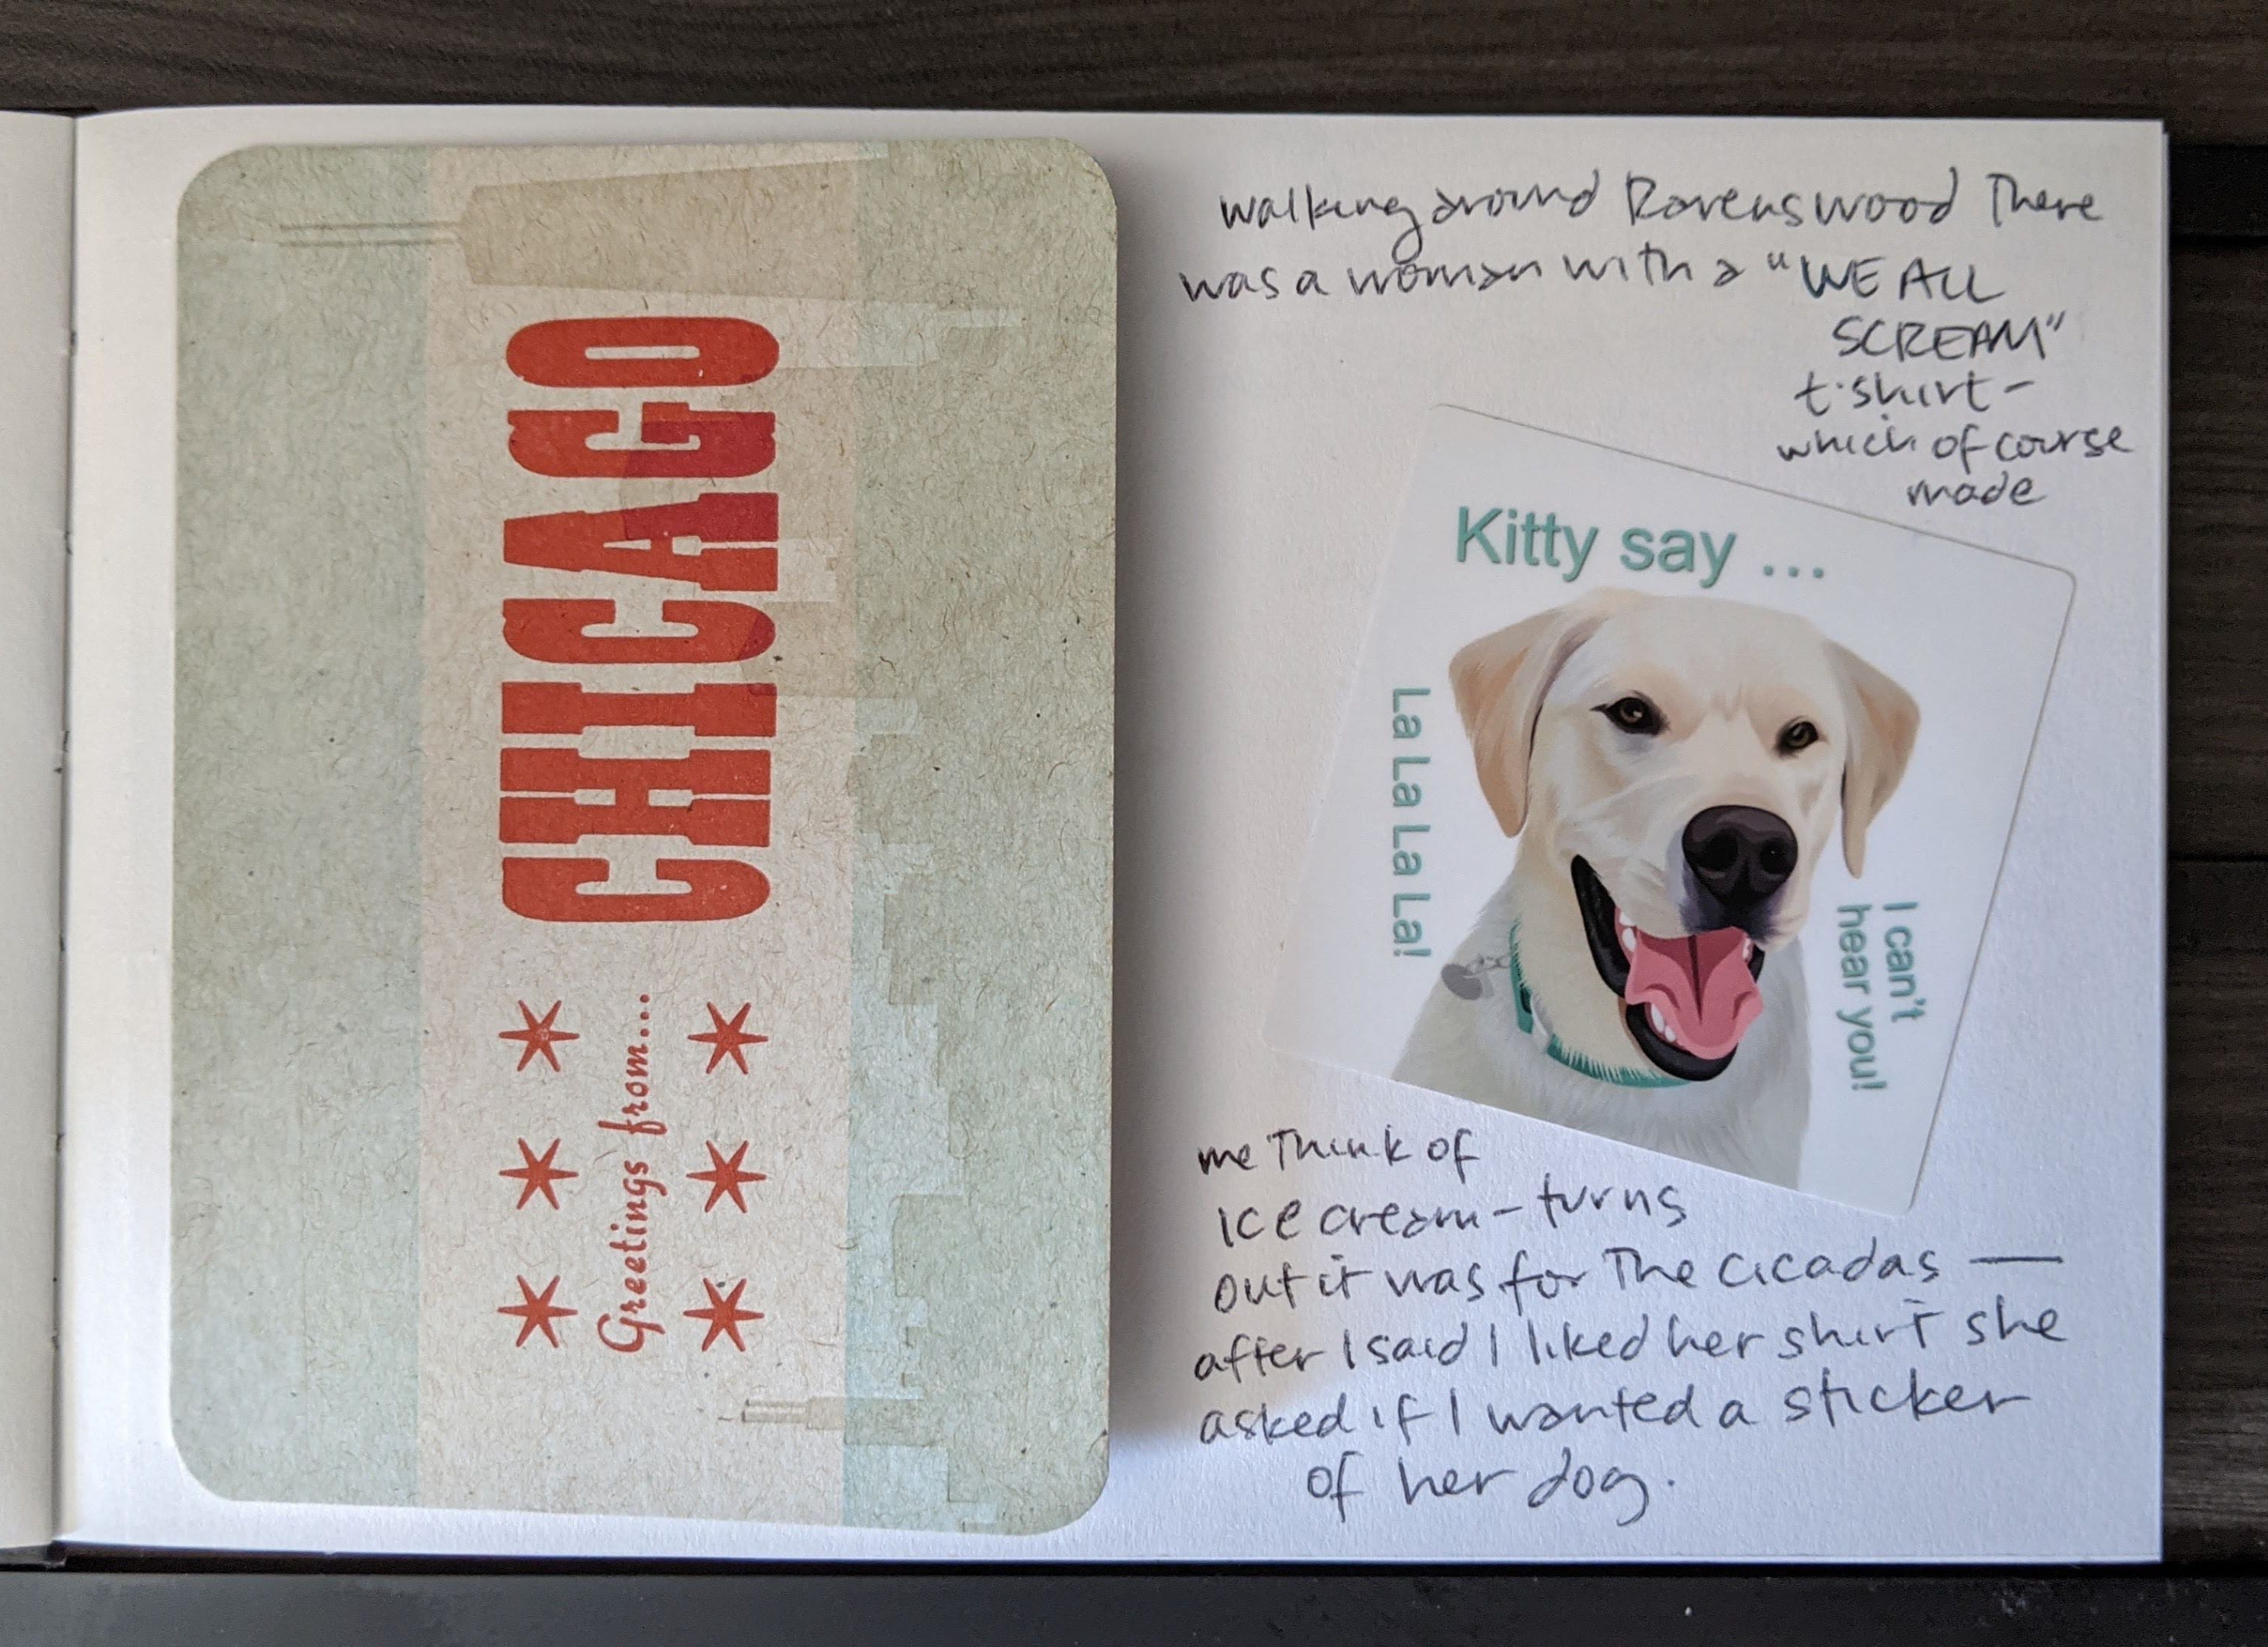 Greetings from...
CHICAGO
walking around Ravenswood There
was a woman with a "WE ALL
SCREAM"
t-shirt —
which of course
made
Kitty say ...
La La La La La!
I can't
hear you!
me Think of
ice cream — turns
out it was for The cicadas —
after I said I liked her shirt she
asked if I wanted a sticker
of her dog.